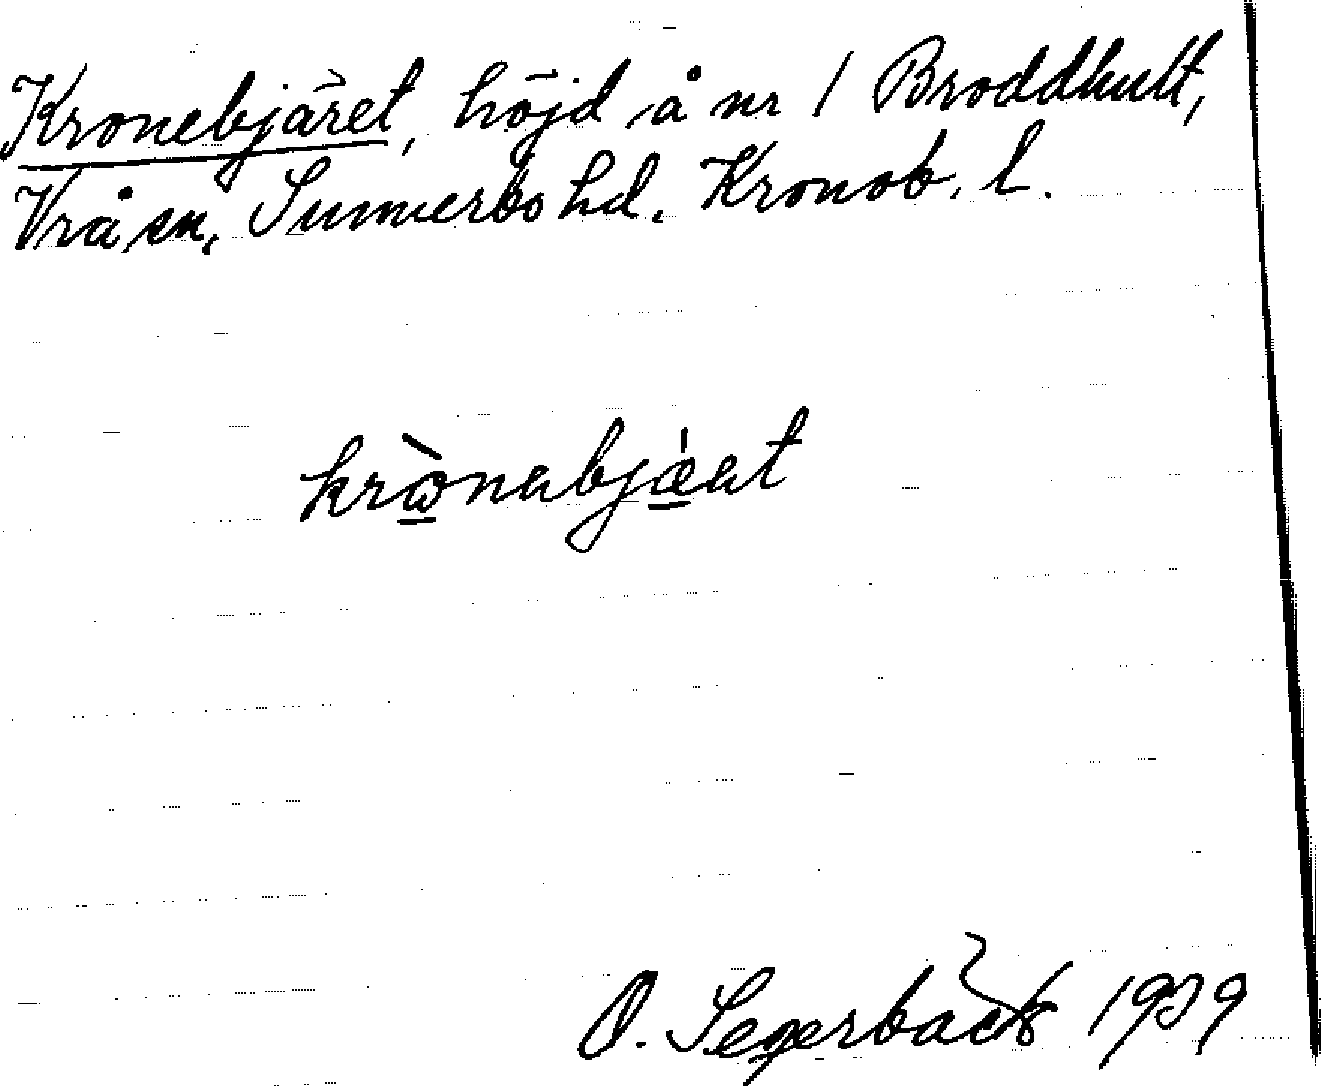 Kronebjäret, höjd å nr 1 Broddhult,
Vrå sn, Sunnerbo hd. Kronob. l.
krὼnabjǽat
O. Segerbäck 1939